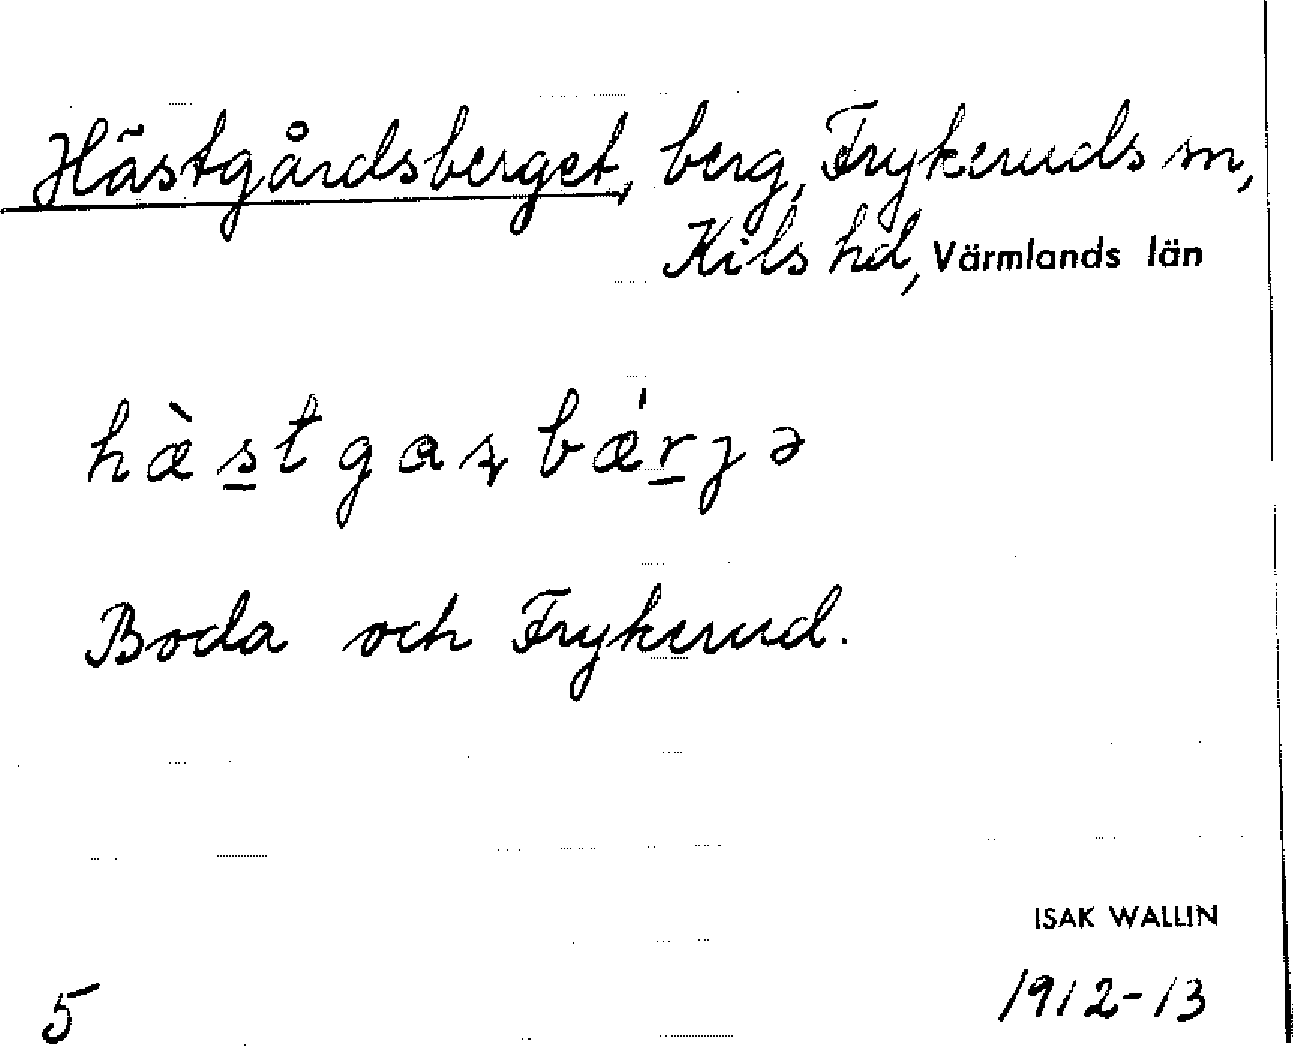 Hästgårdsberget, berg, Frykeruds sn,
Kils hd, Värmlands län
hæ̀s̲tgaꞩbǽr̲jə
Boda och Frykerud.
ISAK WALLIN
5 1912-13